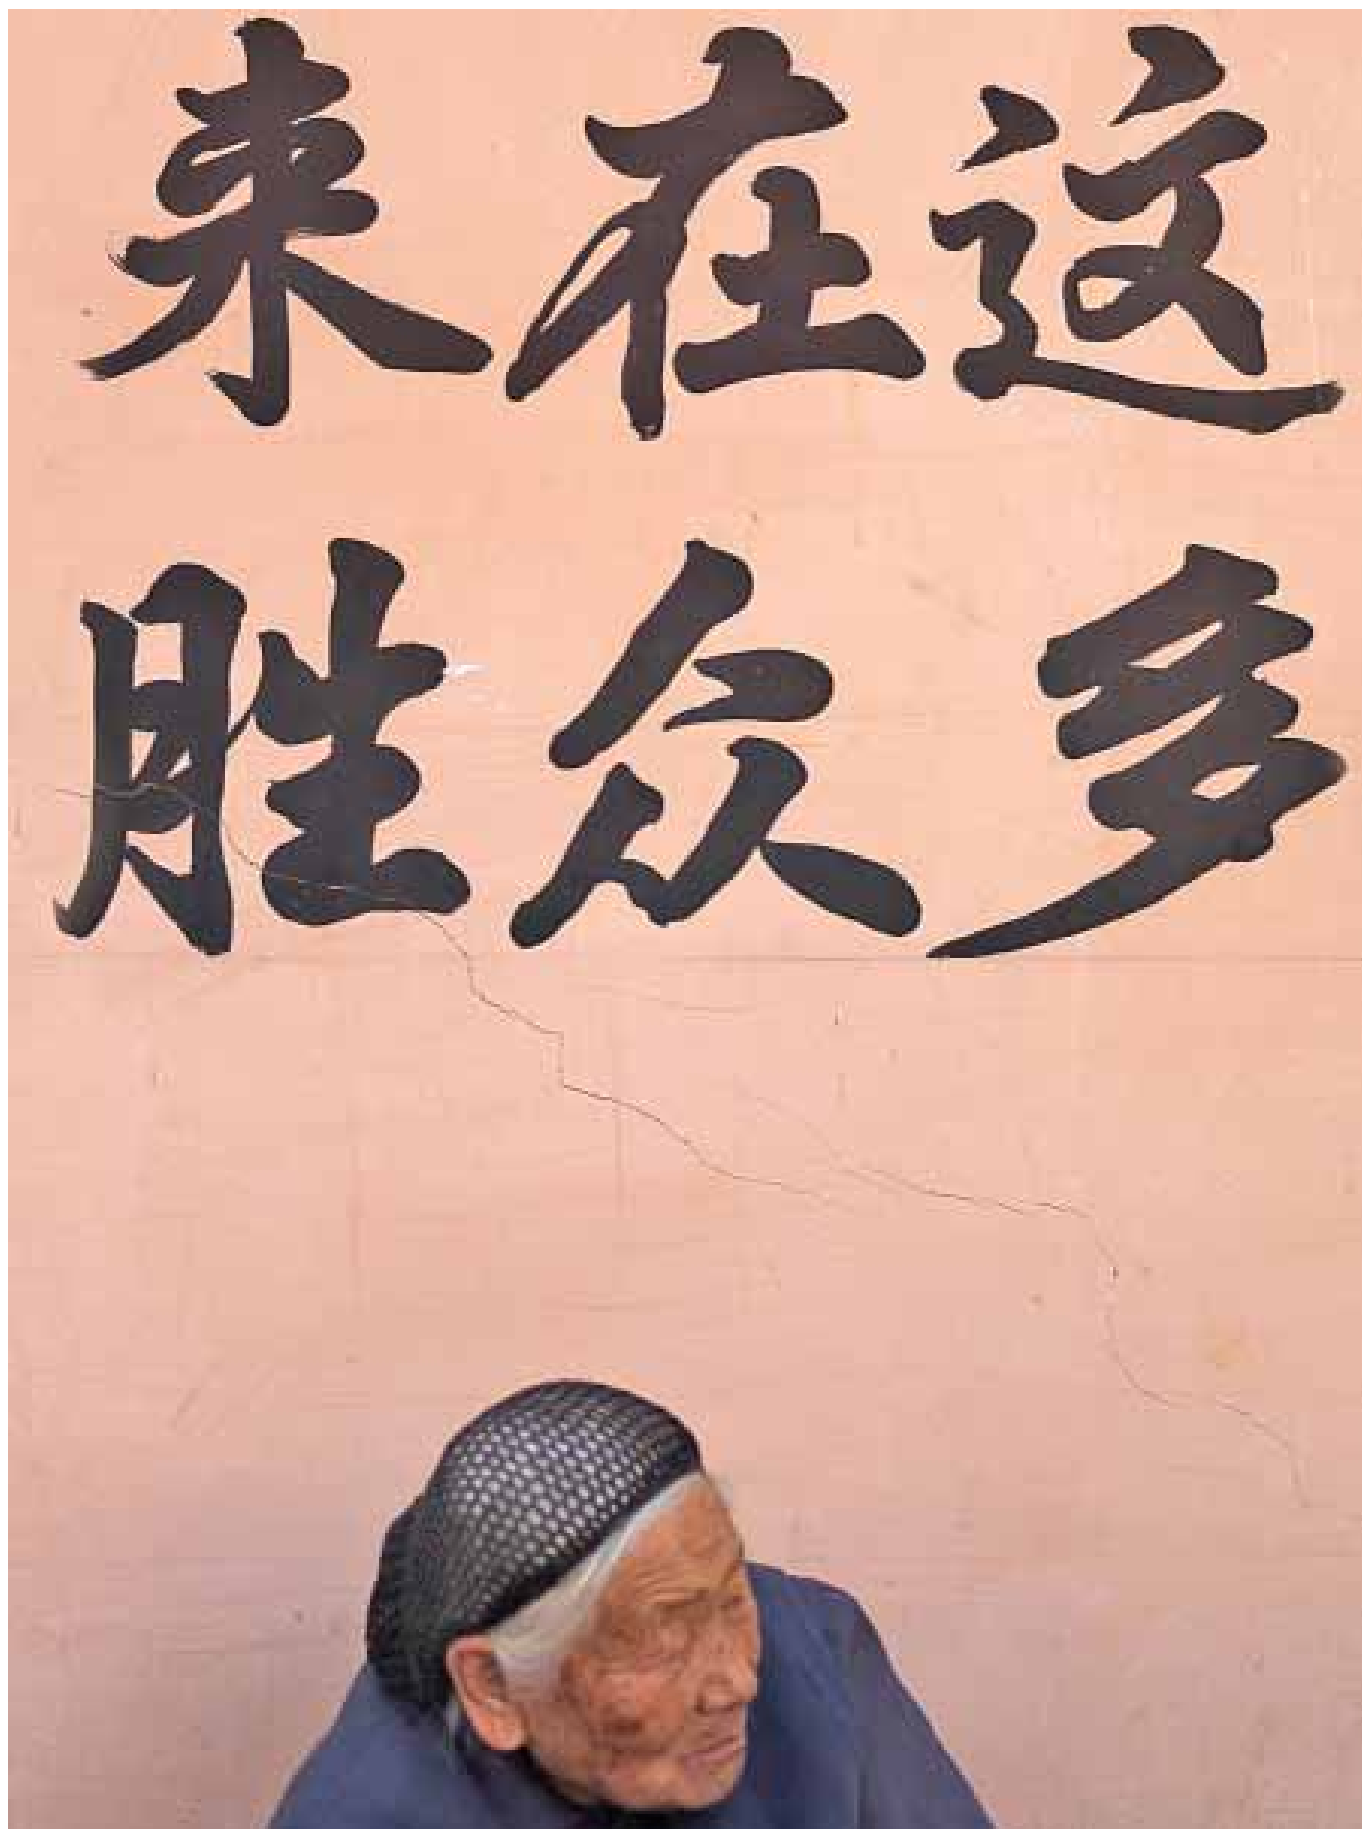 来在这
胜众多